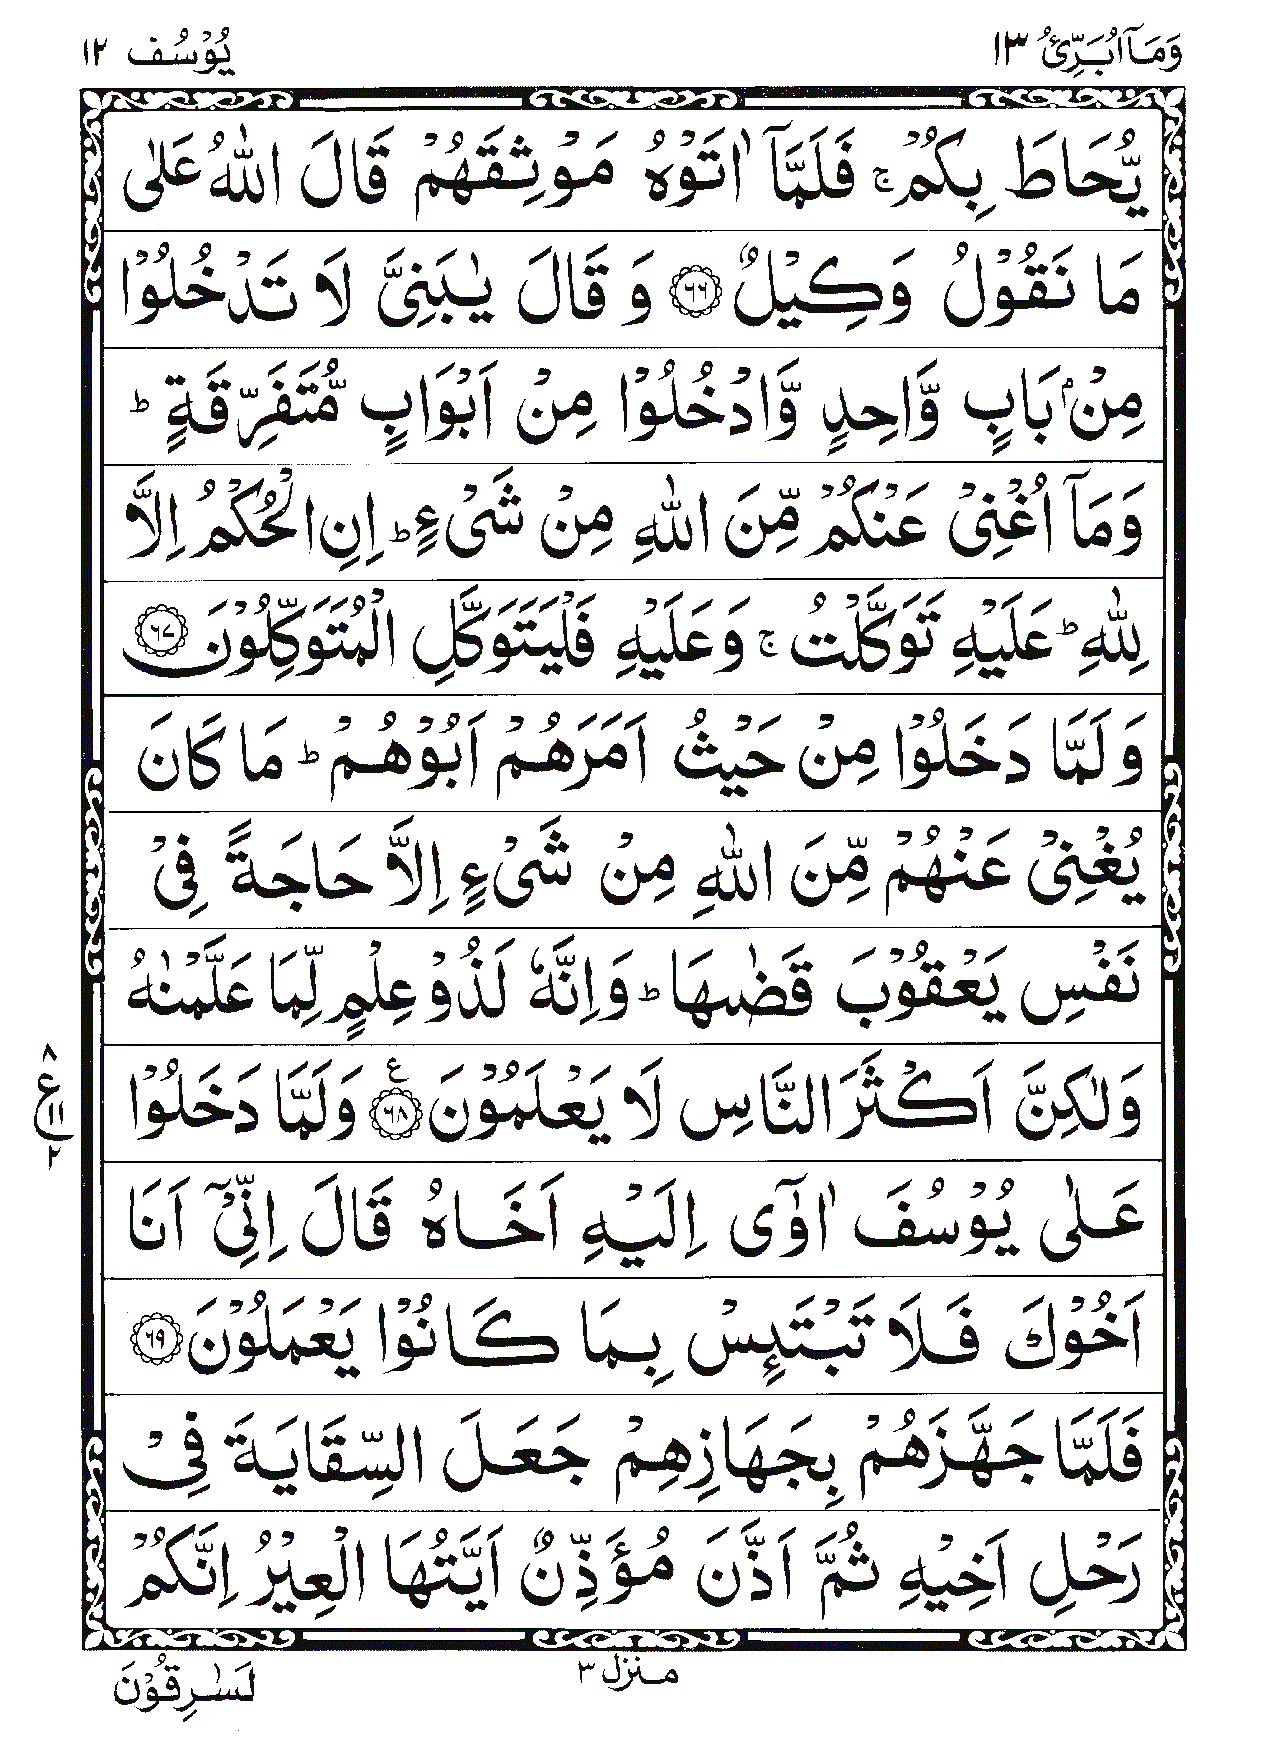 وَمَآ اُبَرِّئُ ١٣
يُوْسُف ١٢
يُّحَاطَ بِكُمْ ۚ فَلَمَّآ اٰتَوْهُ مَوْثِقَهُمْ قَالَ اللّٰهُ عَلٰى
مَا نَقُوْلُ وَكِيْلٌ ﴿٦٦﴾ وَ قَالَ يٰبَنِىَّ لَا تَدْخُلُوْا
مِنْۢ بَابٍ وَّاحِدٍ وَّادْخُلُوْا مِنْ اَبْوَابٍ مُّتَفَرِّقَةٍ ؕ
وَمَآ اُغْنِىْ عَنْكُمْ مِّنَ اللّٰهِ مِنْ شَىْءٍ ؕ اِنِ الْحُكْمُ اِلَّا
لِلّٰهِ ؕ عَلَيْهِ تَوَكَّلْتُ ۚ وَعَلَيْهِ فَلْيَتَوَكَّلِ الْمُتَوَكِّلُوْنَ ﴿٦٧﴾
وَلَمَّا دَخَلُوْا مِنْ حَيْثُ اَمَرَهُمْ اَبُوْهُمْ ؕ مَا كَانَ
يُغْنِىْ عَنْهُمْ مِّنَ اللّٰهِ مِنْ شَىْءٍ اِلَّا حَاجَةً فِىْ
نَفْسِ يَعْقُوْبَ قَضٰىهَا ؕ وَاِنَّهٗ لَذُوْ عِلْمٍ لِّمَا عَلَّمْنٰهُ
وَلٰكِنَّ اَكْثَرَ النَّاسِ لَا يَعْلَمُوْنَ ﴿٦٨﴾ ع وَلَمَّا دَخَلُوْا
٨
ع
١١
٢
عَلٰى يُوْسُفَ اٰوٰٓى اِلَيْهِ اَخَاهُ قَالَ اِنِّىْٓ اَنَا
اَخُوْكَ فَلَا تَبْتَئِسْ بِمَا كَانُوْا يَعْمَلُوْنَ ﴿٦٩﴾
فَلَمَّا جَهَّزَهُمْ بِجَهَازِهِمْ جَعَلَ السِّقَايَةَ فِىْ
رَحْلِ اَخِيْهِ ثُمَّ اَذَّنَ مُؤَذِّنٌ اَيَّتُهَا الْعِيْرُ اِنَّكُمْ
منزل ٣
لَسٰرِقُوْنَ